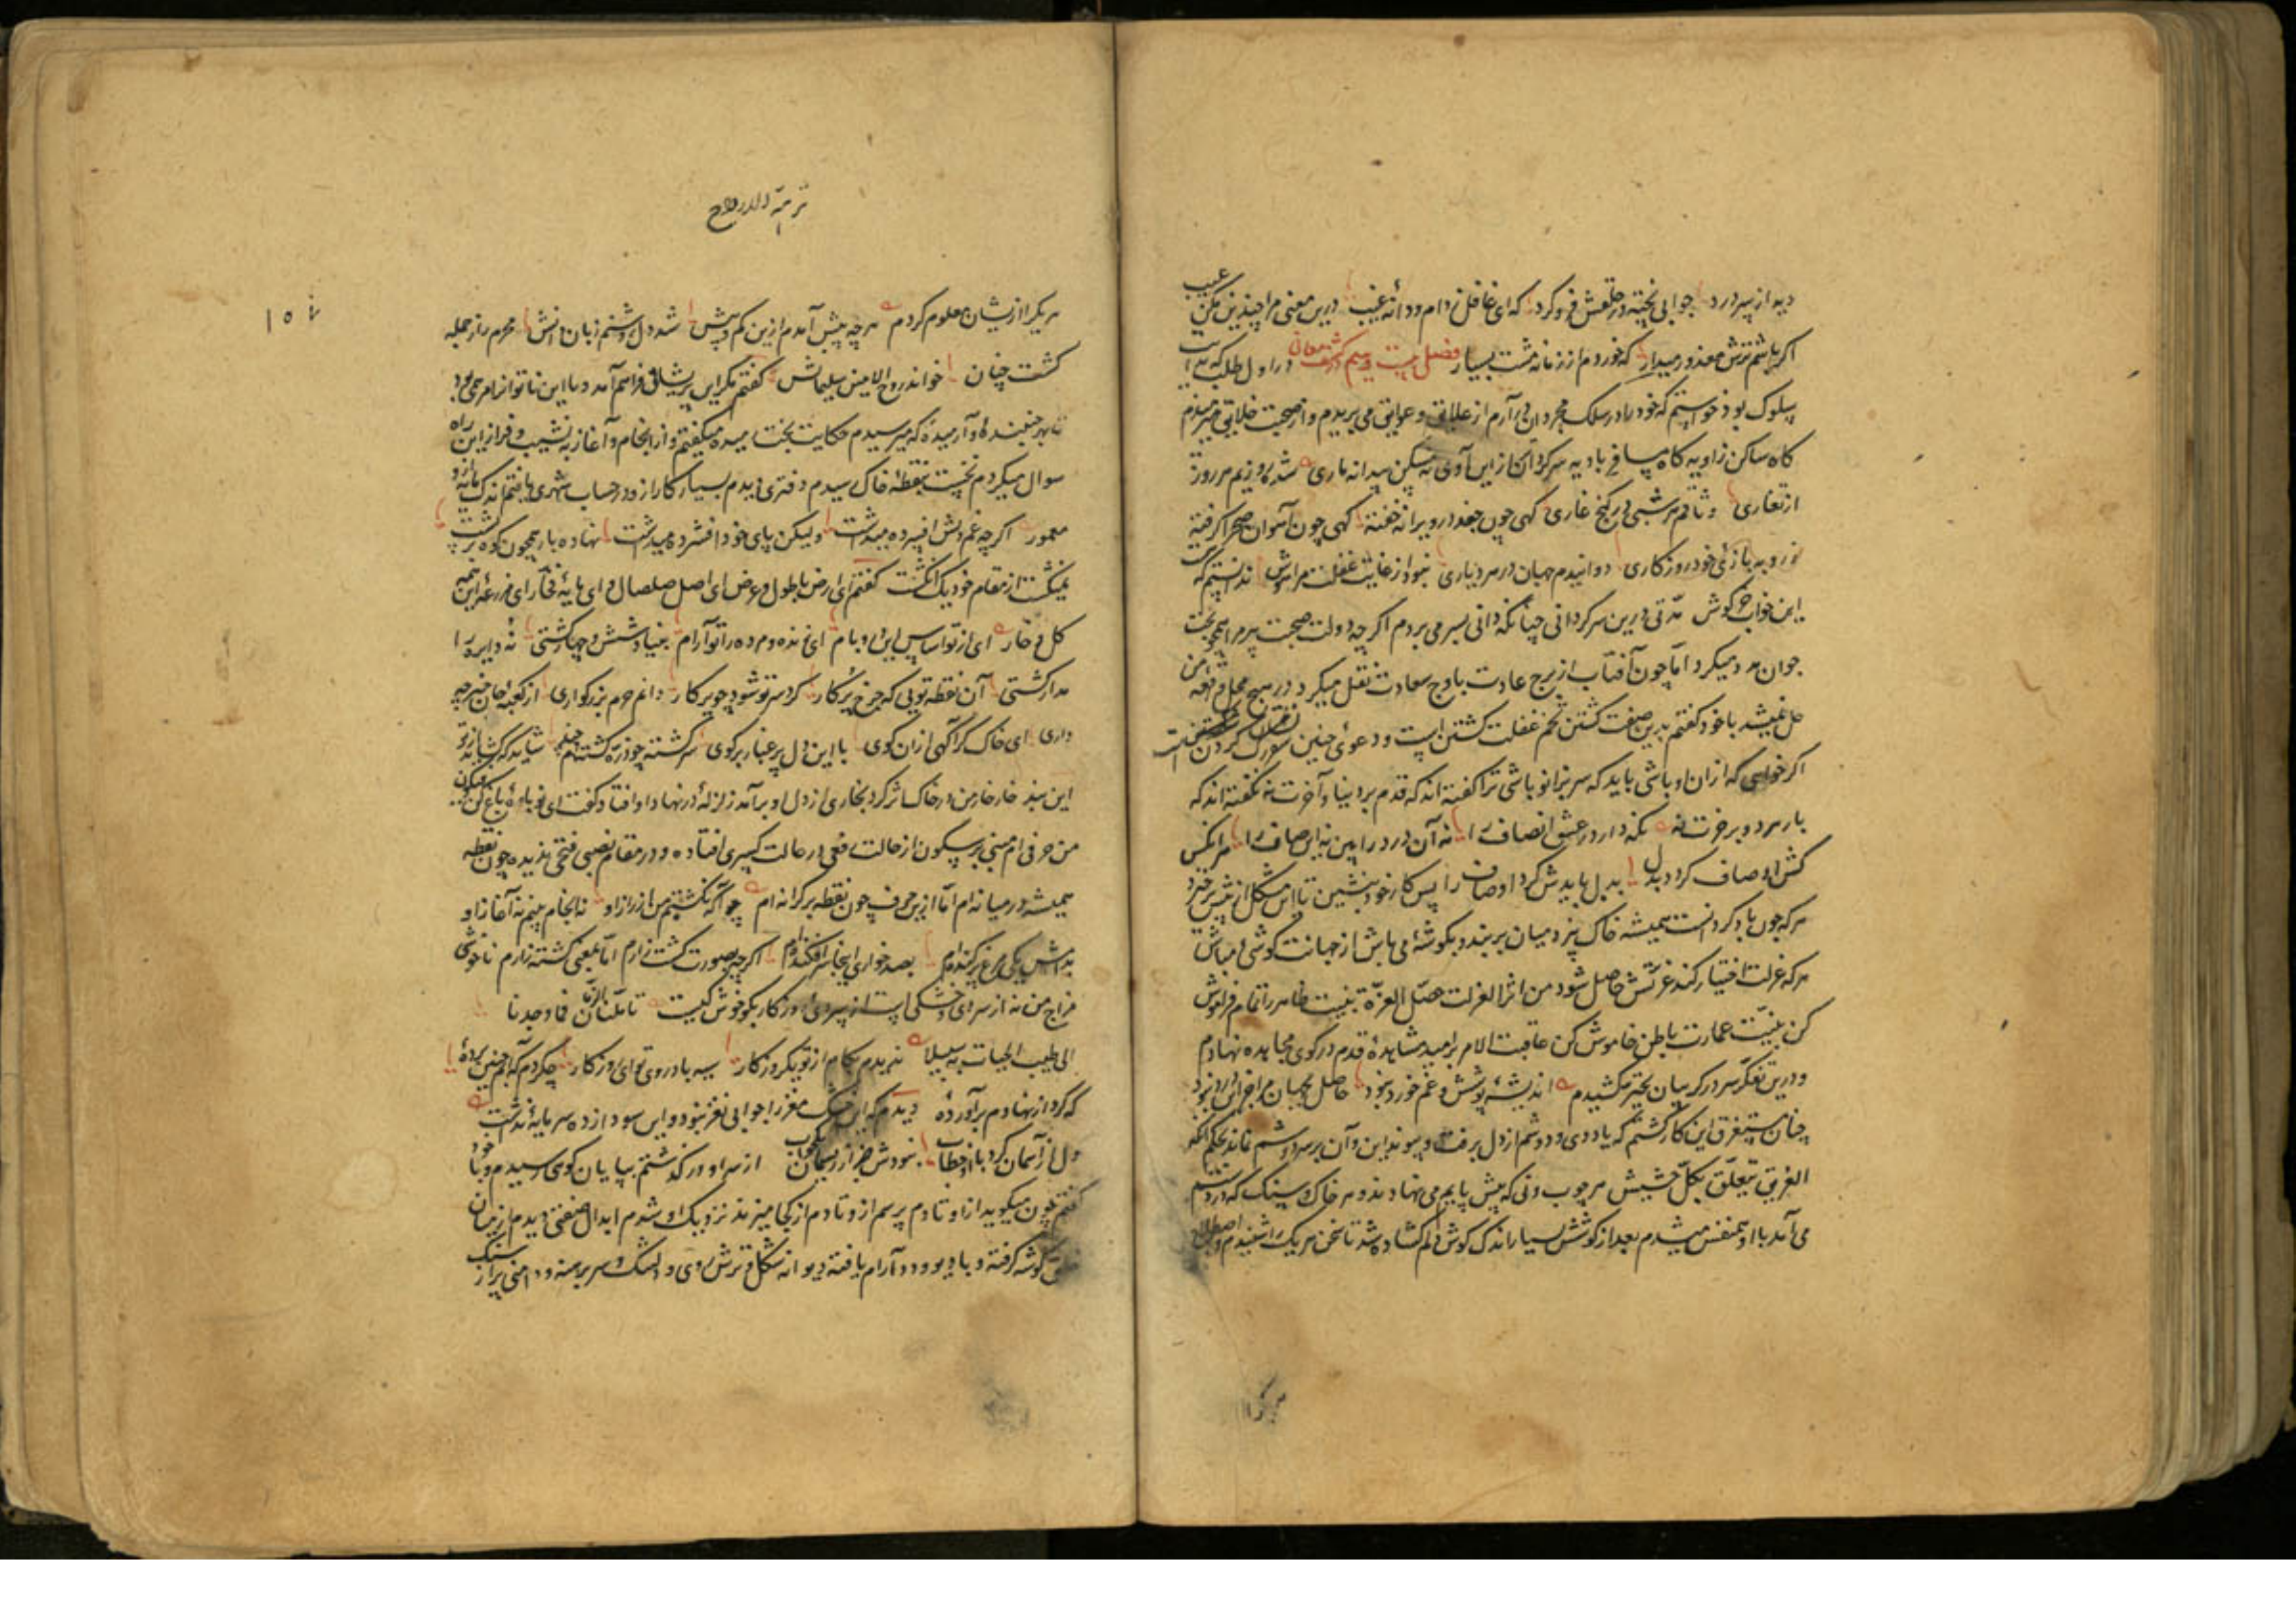 دید از پیر درد جوابی پخته در حلقش فرو کرد که ای غافل ز دام و دانهٔ غیب درین معنی مرا چندین مکن عیب
اکر باشم ترش معذور میدار که خوردم از زمانه مشت بسیار فصل بیست و سیم در اول طلب که
سلوک بود خواستم که خود را در سلک مجردان در آرم از علایق و عوایق می بریدم و از صحبت خلایق می رمیدم
کاه ساکن زاویه کاه مسافر بادیه سرکردان از این آدمی نه مسکن پیدا نه ماری شده روزیم هر روز
از تغاری وثاقم هر شبی در کنج غاری کهی چون جغد در ویرانه خفته کهی چون آهوان صحرا کرفته
بازئ خود روزکاری دوانیدم جهان در هر دیاری نبود از غایت غفلت مرا هوش ندانستم که
این خواب خرکوش مدتی درین سرکردانی چنانکه دانی بسر می بردم اکر چه دولت صحبت پیر مرا همچو بخت
جوان مدد میکرد اما چون آفتاب از برج عادت باوج سعادت نقل میکرد در هیچ محل
حل نمیشد با خود کفتم بدین صفت کشتن تخم غفلت کشتن است و دعوئ چنین کردن
اکر خواهی که از ان او باشی باید که سر بزانو باشی ترا کفته اند که قدم بر دنیا و آخرت نه نکفته اند که
بار بر در آخرت نه نکه دار در عشق انصاف را نه آن درد را بین نه این صاف را هر انکس
کش اوصاف کردد بدل بدل بایدش کرد اوصاف را پس کار خود بنشین تا این مشکل از پیش برخیزد
هر که چون باد کرد انست همیشه خاک بیزد میان بر بند و بکوشهٔ می باش از جهانت کوشی می باش
هر که عزلت اختیار کند عزتش حاصل شود من اثر العزلت حصل العزة بنیت ظاهر را تمام فراموش
کن بنیت عمارت باطن خاموش کن عاقبت الامر بر امید مشاهدهٔ قدم در کوی مجاهده نهادم
و درین تفکر سر در کریبان تحیر کشیدم اندیشهٔ پوشش و غم خورد نبود حاصل ز جهان مرا جز این درد نبود
چنان مستغرق این کار کشتم که یاد دی و دوشم از دل برفت و پیوند این و آن بر سر دوشم نماند بحکم آنکه
الغریق یتعلق بکل حشیش هر چوب و نی که پیش پایم می نهادند و هر خاک و سنک که در دستم
می آمد با او همنفس میشدم بعد از کوشش بسیار اندک کوش دلم کشاده شد تا سخن هر یک را شنیدم و اصطلاح
هر یکرا
نزهة الارواح
هر یکرا از ایشان معلوم کردم هر چه پیش آمدم ازین کم و بیش شد دل روشنم زبان دانش محرم راز جمله
کشت چنان خواند روح الامین سلیمانش کفتم مکر این پریشانی فراهم آمد و با این ناتوان مرهمی بود
بهر جنبنده و آرمیده که میرسیدم حکایت بخت رمیده میکفتم و از انجام و آغاز به نشیب و فراز این راه
سوال میکردم نخست بنقطهٔ خاک رسیدم دفتری دیدم بسیار کار ازو در حساب شهری یافتم اندک مانده
معمور اکر چه غم دلش افسرده میداشت ولیکن پای خود افشرده میداشت نهاده بار همچون کوه بر پشت
نمیکشت از مقام خود یک انکشت کفتم ای ارض با طول و عرض ای اصل صلصال و ای مایهٔ فخار ای مزرعه این همه
کل و خار ای از تو اساس این در و بام ای زنده و مرده را تو آرام بنیاد شش و چهار کشتی نه دایره را
مدار کشتی آن نقطه تویی که چرخ پرکار کرد سر تو شود چو پرکار دانم حرم بزرکواری از کعبهٔ جان خبر چه
داری ای خاک کرا کهی از ان کوی با این دل پر غبار بر کوی سر کشته چو ذره کشته ام شاید که کشاید از تو
این بند خار خار من در خاک اثر کرد بخاری از دل او بر آمد زلزلهٔ در نهاد او افتاد کفت ای نوباوهٔ باغ کن فیکون
من حرفی ام مبنی بر سکون از حالت رفعی در حالت کسری افتاده و در مقام نصبی فتحی ندیده چون نقطه
همیشه در میانه ام اما ازین حرف چون نقطه بر کرانه ام چو آکه نکشتم من از راز او نه انجام بینم نه آغاز او
بصد خواری اینجا سر افکنده ام اکر چه بصورت کشت زارم اما بمعنی کشته زارم ناخوشی
مزاج من نه از سردی و خشکی است از سردئ روزکار بکو خوش کیست تاملنا الزمان فما وجدنا
الی طیب الحیات به سبیلا ندیدم بکام از تو یکروزکار سیه باد روی تو ای روزکار چکردم که با من چنین کردهٔ
که کرد از نهادم بر آوردهٔ دیدم که این خشک مغز را جوابی نغز نبود و این سودا زده سرمایهٔ نداشت
دل از آسمان کرد با او خطاب نبودش جز از ریسمان جواب از سر او در کذشتم بپایان کوهی رسیدم و با خود
کفتم چون میکویید از او تا دم پرسم ازو تا دم از کجا میزند نزدیک او شدم ابدال صفتی دیدم از میان
خلق کوشه کرفته و با دیو و دد آرام یافته دیوانه شکل و ترش روی و دلتنک و سر برهنه و دامنی پر از سنک